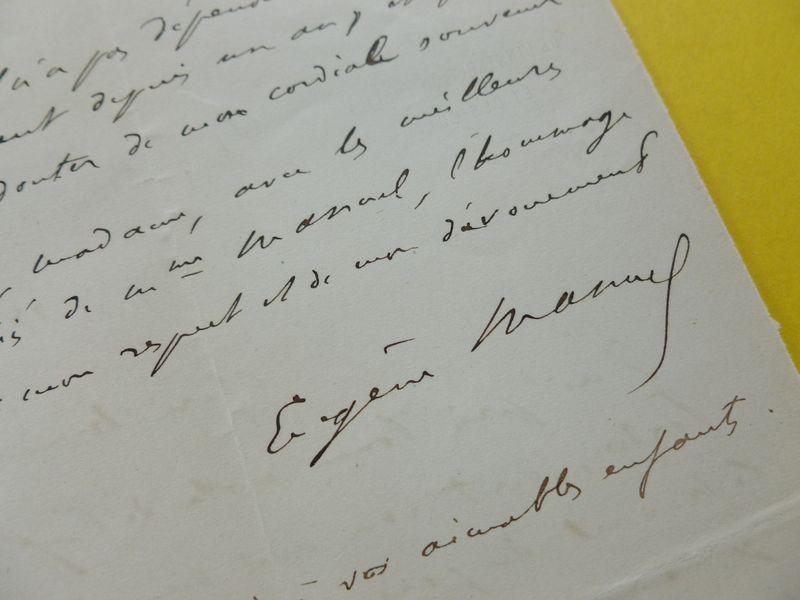 n'a pas dépend
depuis un an, et
douter de mon cordial souvenir
madame, avec les meilleures
de Mme Manuel, l'hommage
mon respect et de mon dévouement
Eugène Manuel
à vos aimables enfants.